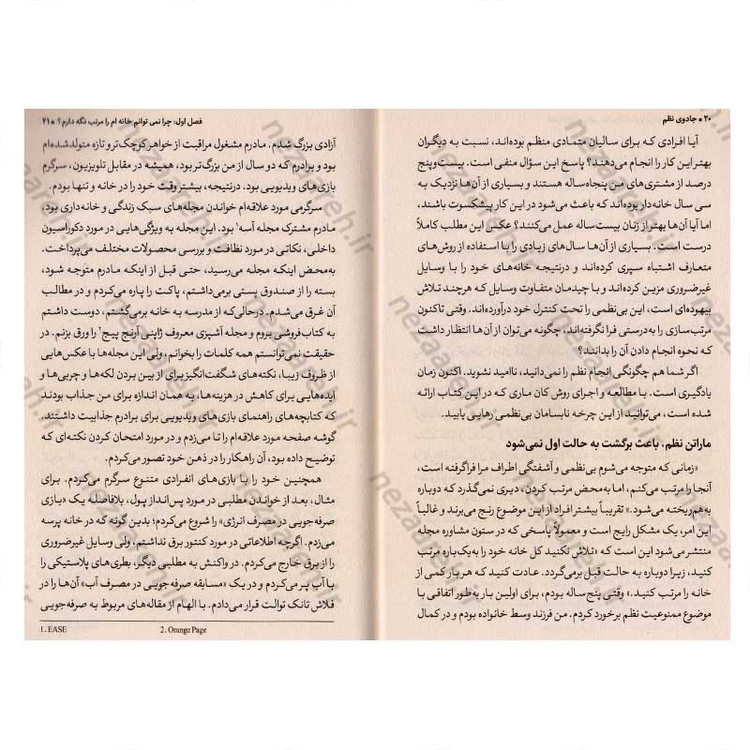 ۲۰ * جادوی نظم
آیا افرادی که برای سالیان متمادی منظم بوده‌اند، نسبت به دیگران
بهتر این کار را انجام می‌دهند؟ پاسخ این سؤال منفی است. بیست‌وپنج
درصد از مشتری‌های من پنجاه‌ساله هستند و بسیاری از آن‌ها نزدیک به
سی سال خانه‌دار بوده‌اند که باعث می‌شود در این کار پیشکسوت باشند،
اما آیا آن‌ها بهتر از زنان بیست‌ساله عمل می‌کنند؟ عکس این مطلب کاملاً
درست است. بسیاری از آن‌ها سال‌های زیادی را با استفاده از روش‌های
متعارف اشتباه سپری کرده‌اند و درنتیجه خانه‌های خود را با وسایل
غیرضروری مزین کرده‌اند و با چیدمان متفاوت وسایل که هرچند تلاش
بیهوده‌ای است، این بی‌نظمی را تحت کنترل خود درآورده‌اند. وقتی تاکنون
مرتب‌سازی را به‌درستی فرا نگرفته‌اند، چگونه می‌توان از آن‌ها انتظار داشت
که نحوه انجام دادن آن را بدانند؟
اگر شما هم چگونگی انجام نظم را نمی‌دانید، ناامید نشوید. اکنون زمان
یادگیری است. با مطالعه و اجرای روش کان ماری که در این کتاب ارائه
شده است، می‌توانید از این چرخه نابسامان بی‌نظمی رهایی یابید.
ماراتن نظم، باعث برگشت به حالت اول نمی‌شود
«زمانی که متوجه می‌شوم بی‌نظمی و آشفتگی اطراف مرا فراگرفته است،
آنجا را مرتب می‌کنم، اما به‌محض مرتب کردن، دیری نمی‌گذرد که دوباره
به‌هم‌ریخته می‌شود.» تقریباً بیشتر افراد از این موضوع رنج می‌برند و غالباً
این امر، یک مشکل رایج است و معمولاً پاسخی که در ستون مشاوره مجله
منتشر می‌شود این است که «تلاش نکنید کل خانه خود را به‌یک‌باره مرتب
کنید، زیرا دوباره به حالت قبل برمی‌گردد. عادت کنید که هر بار کمی از
خانه را مرتب کنید.» وقتی پنج‌ساله بودم، برای اولین بار به‌طور اتفاقی با
موضوع ممنوعیت نظم برخورد کردم. من فرزند وسط خانواده بودم و در کمال
فصل اول: چرا نمی توانم خانه ام را مرتب نگه دارم؟ * ۲۱
آزادی بزرگ شدم. مادرم مشغول مراقبت از خواهر کوچک‌تر و تازه متولدشده‌ام
بود و برادرم که دو سال از من بزرگ‌تر بود، همیشه در مقابل تلویزیون، سرگرم
بازی‌های ویدیویی بود. درنتیجه، بیشتر وقت خود را در خانه و تنها بودم.
سرگرمی مورد علاقه‌ام خواندن مجله‌های سبک زندگی و خانه‌داری بود.
مادرم مشترک مجله آسه۱ بود. این مجله به ویژگی‌هایی در مورد دکوراسیون
داخلی، نکاتی در مورد نظافت و بررسی محصولات مختلف می‌پرداخت.
به‌محض اینکه مجله می‌رسید، حتی قبل از اینکه مادرم متوجه شود،
بسته را از صندوق پستی برمی‌داشتم، پاکت را پاره می‌کردم و در مطالب
آن غرق می‌شدم. درحالی‌که از مدرسه به خانه برمی‌گشتم، دوست داشتم
به کتاب‌فروشی بروم و مجله آشپزی معروف ژاپنی آرنج پیج۲ را ورق بزنم. در
حقیقت نمی‌توانستم همه کلمات را بخوانم، ولی این مجله‌ها با عکس‌هایی
از ظروف زیبا، نکته‌های شگفت‌انگیز برای از بین بردن لکه‌ها و چربی‌ها و
ایده‌هایی برای کاهش در هزینه‌ها، به همان اندازه برای من جذاب بودند
که کتابچه‌های راهنمای بازی‌های ویدیویی برای برادرم جذابیت داشتند.
گوشه صفحه مورد علاقه‌ام را تا می‌زدم و در مورد امتحان کردن نکته‌ای که
توضیح داده بود، آن راهکار را در ذهن خود تصور می‌کردم.
همچنین خود را با بازی‌های انفرادی متنوع سرگرم می‌کردم. برای
مثال، بعد از خواندن مطلبی در مورد پس‌انداز پول، بلافاصله یک «بازی
صرفه‌جویی در مصرف انرژی» را شروع می‌کردم؛ بدین گونه که در خانه پرسه
می‌زدم. اگرچه اطلاعاتی در مورد کنتور برق نداشتم، ولی وسایل غیرضروری
را از برق خارج می‌کردم. در واکنش به مطلبی دیگر، بطری‌های پلاستیکی را
با آب پر می‌کردم و در یک «مسابقه صرفه‌جویی در مصرف آب» آن‌ها را در
فلاش تانک توالت قرار می‌دادم. با الهام از مقاله‌های مربوط به صرفه‌جویی
1. EASE 2. Orange Page
nezaareh.ir